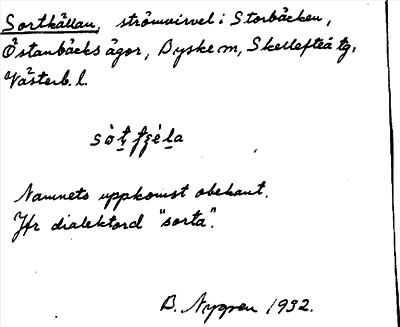 Sortkällan, strömvirvel i Storbäcken,
Östanbäcks ägor, Byske sn, Skellefteå tg,
Västerb. l.
Namnets uppkomst obekant.
Jfr dialektord "sorta".
B. Nygren 1932.